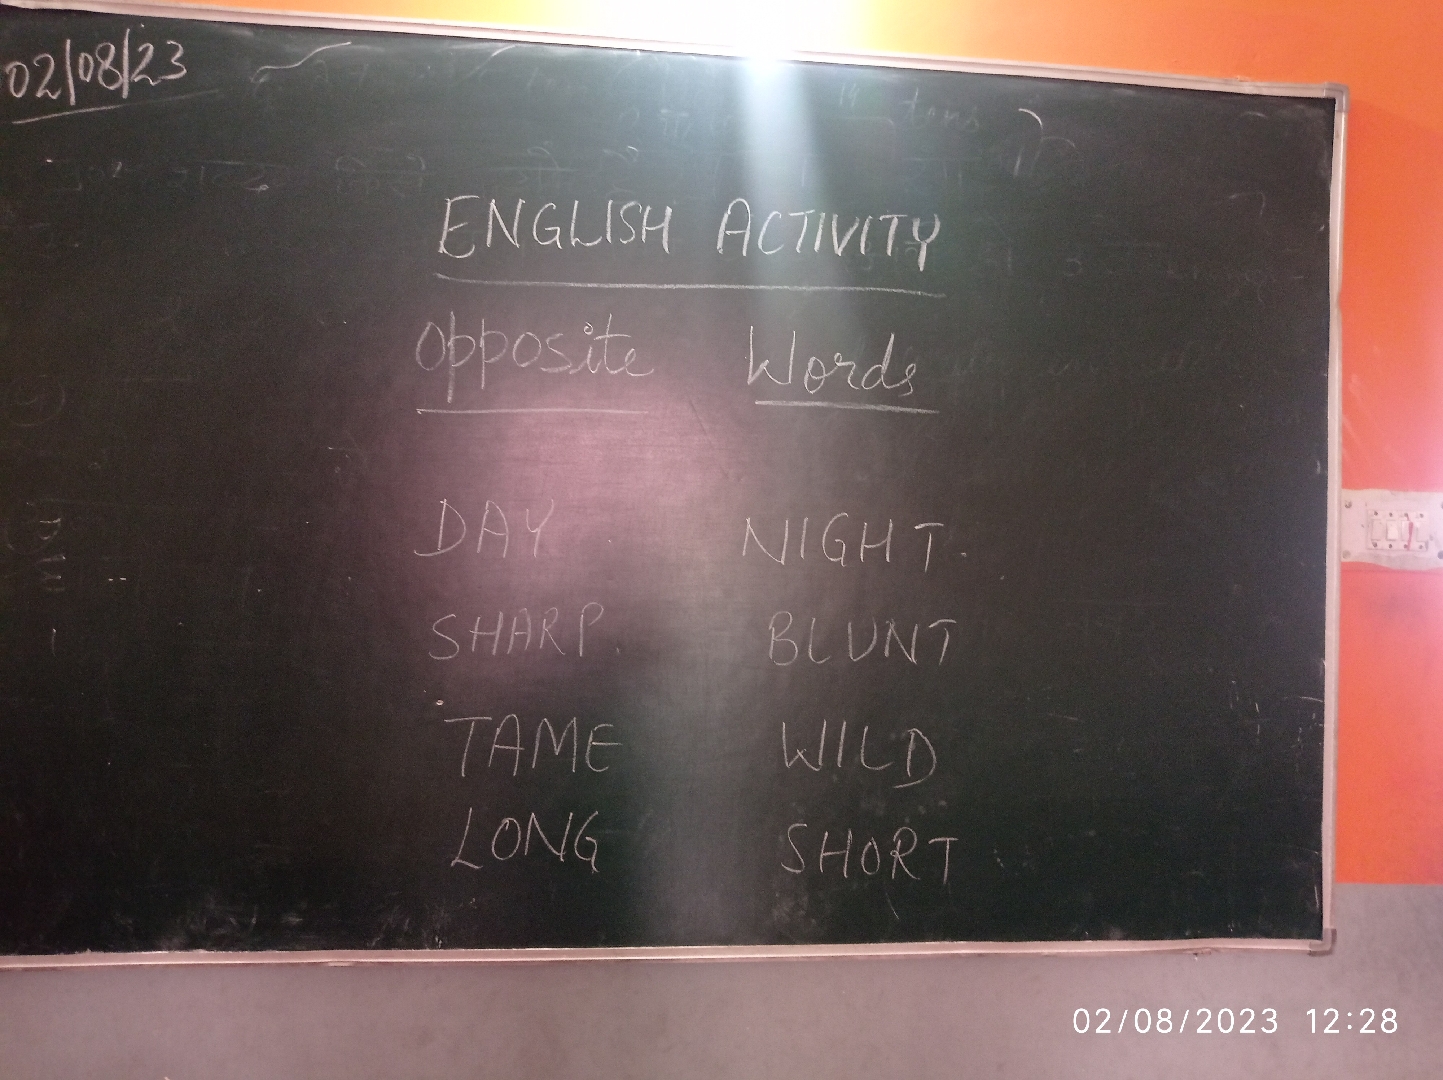 02/08/23
ENGLISH ACTIVITY
Opposite Words
DAY NIGHT.
SHARP. BLUNT
TAME WILD
LONG SHORT
02/08/2023 12:28